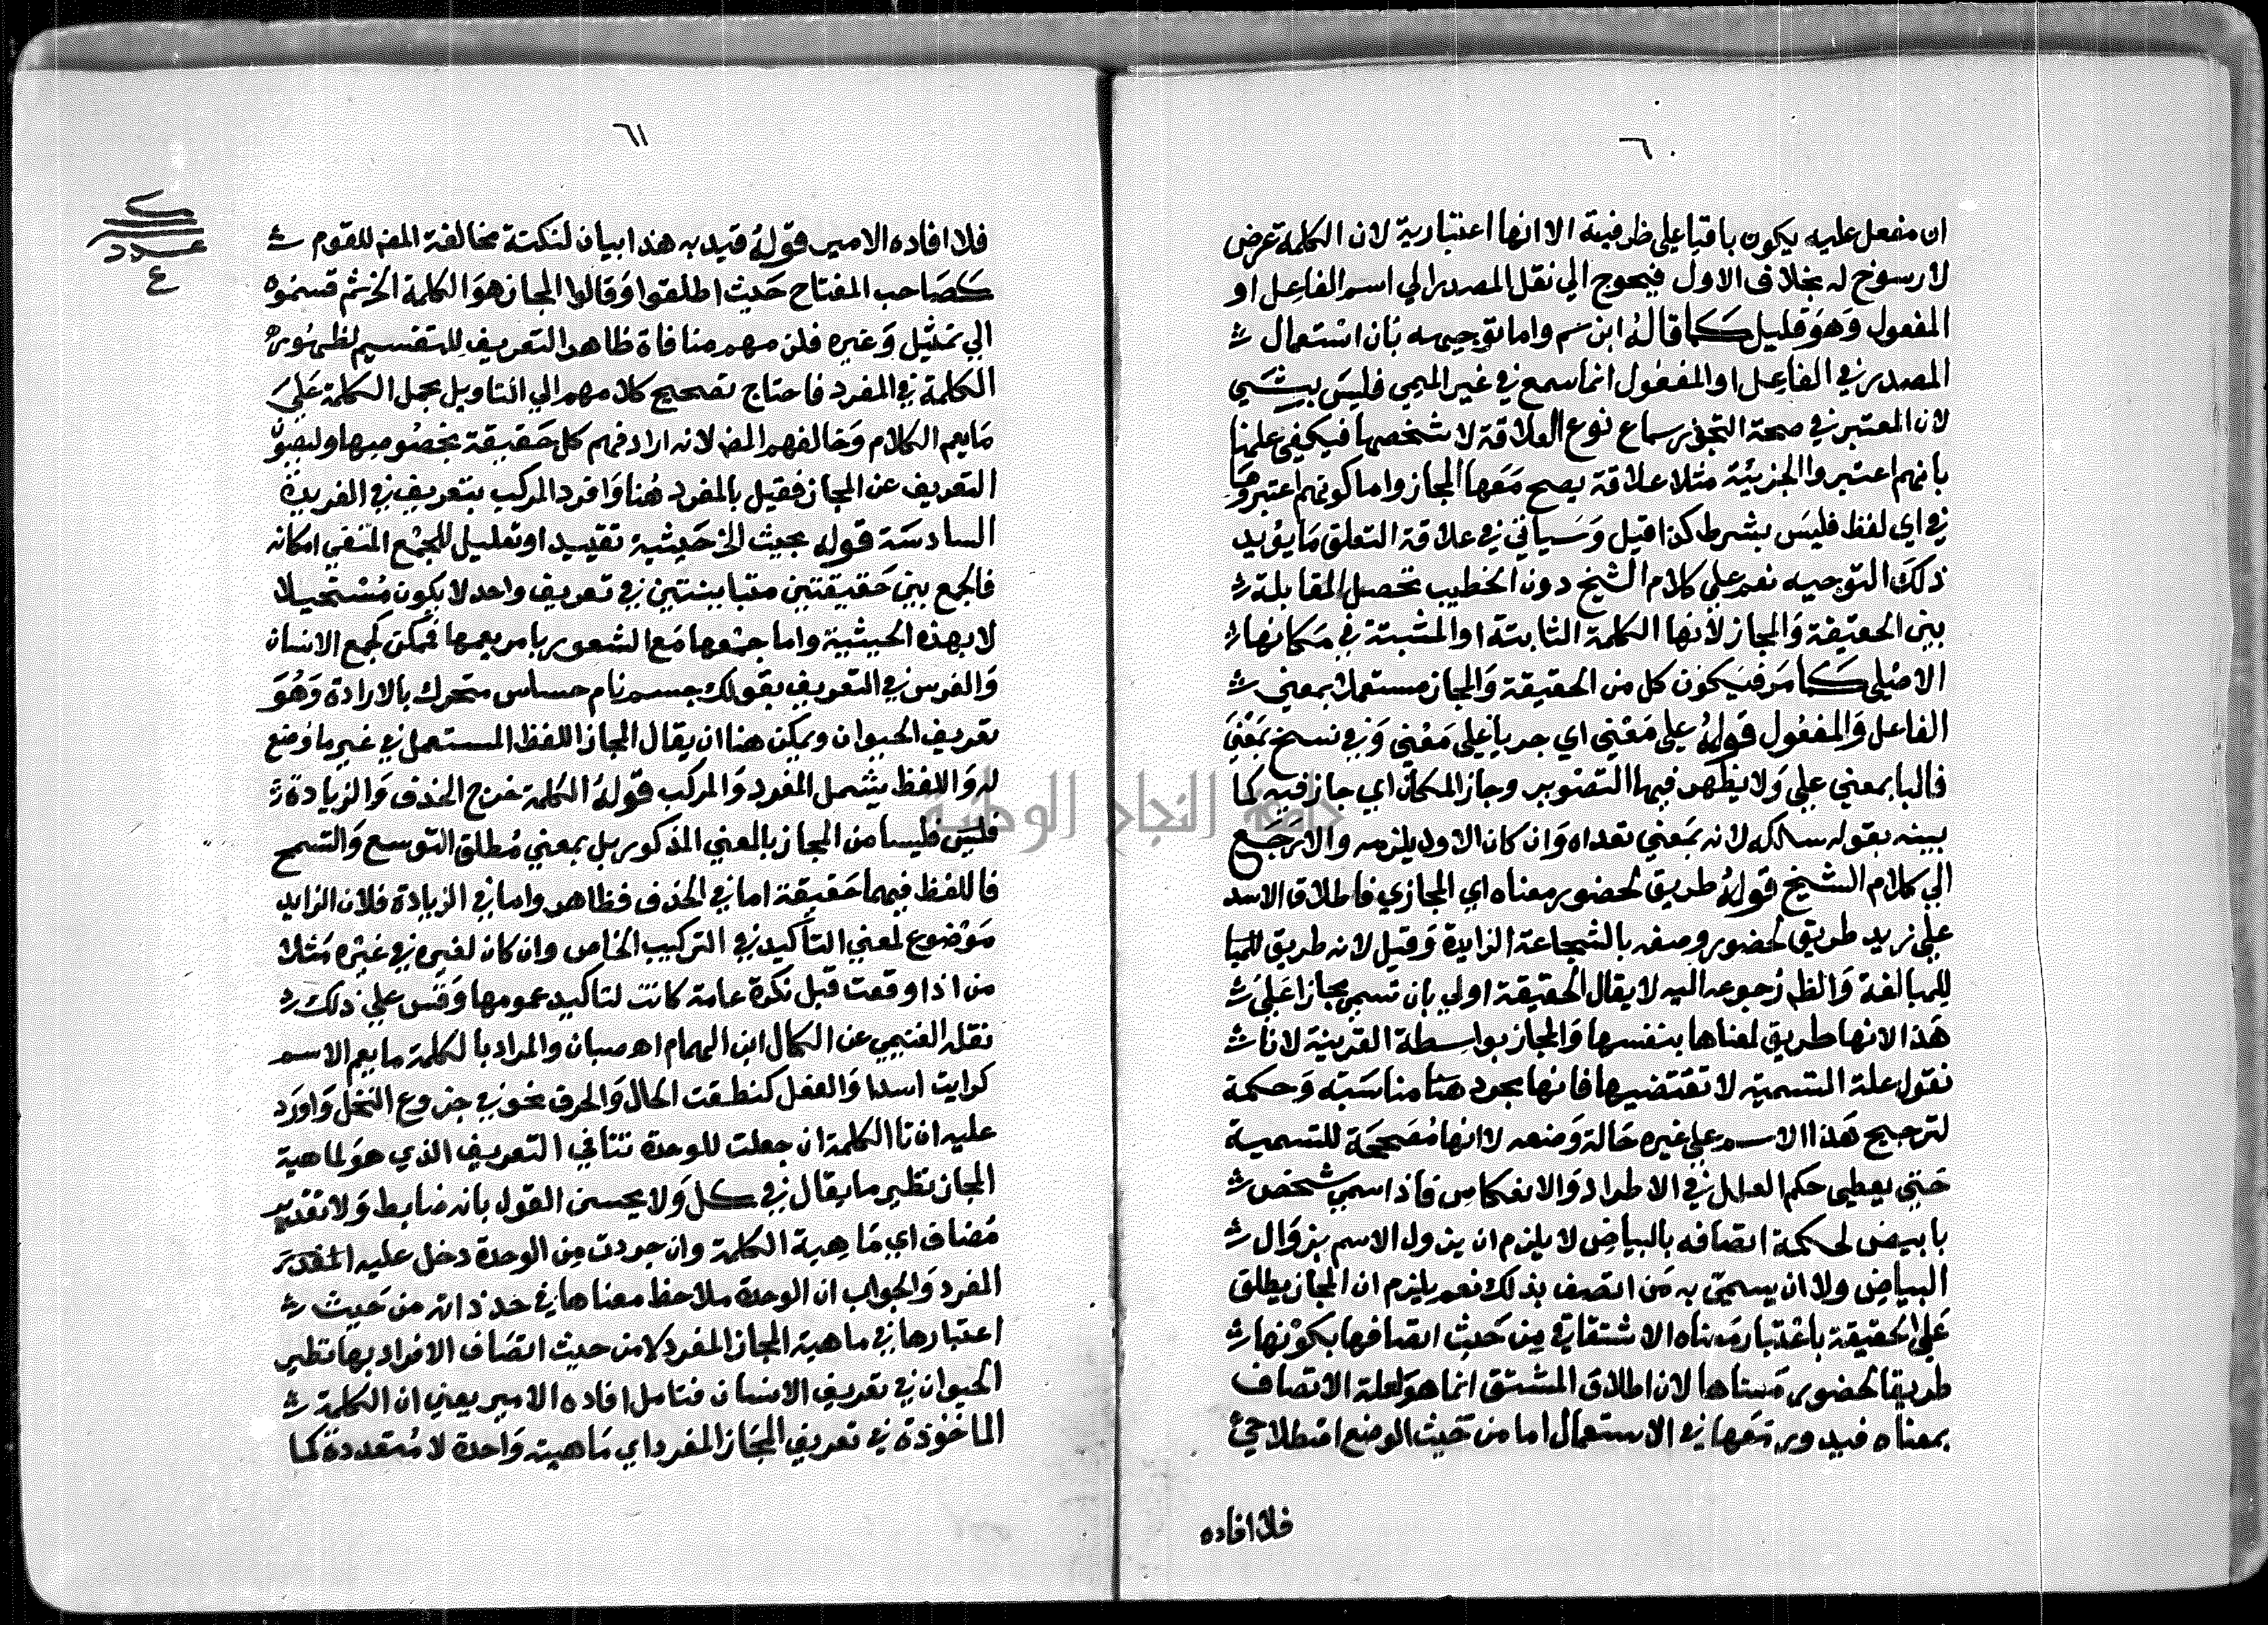 ٦٠
ان مفعل عليه يكون باقيا على ظرفيته الا انها اعتبارية لان الكلمة عرض
لا رسوخ له بخلاف الاول فيحوج الي نقل المصدر الي اسم الفاعل او
المفعول وهو قليل كما قاله ابن سم واما توجيهه بأن استعمال
المصدر في الفاعل او المفعول انما سمع في غير الميمي فليس بشي
لان المعتبر في صحة التجوز سماع نوع العلاقة لا شخصها فيكفي علمنا
بانهم اعتبروا الجزئية مثلا علاقة يصح معها المجاز واما كونهم اعتبروها
في اي لفظ فليس بشرط كذا قيل وسيأتي في علاقة التعلق ما يؤيد
ذلك التوجيه نعم على كلام الشيخ دون الخطيب تحصل المقابلة
بين الحقيقة والمجاز لأنها الكلمة الثابتة او المثبتة في مكانها
الاصلي كما مر فيكون كل من الحقيقة والمجاز مستعملا بمعني
الفاعل والمفعول قوله على معني اي جريا على معني وفي نسخ بمعني
فالبا بمعني علي ولا يظهر فيها التصوير وجاز المكان اي جاز فيه كما
بينه بقوله سلكه لانه بمعني تعداه وان كان الاول يلزمه والا رجع
الي كلام الشيخ قوله طريق لحضور معناه اي المجازي فاطلاق الاسد
علي زيد طريق لحضور وصفه بالشجاعة الزايدة وقيل لانه طريق للبا
للمبالغة والظ رجوعه اليه لا يقال الحقيقة اولي بان تسمي مجازا علي
هذا لانها طريق لمعناها بنفسها والمجاز بواسطة القرينة لانا
نقول علة التسمية لا تقتضيها فانها مجرد مناسبة وحكمة
لترجيح هذا الاسم علي غيره حالة وضعه لا انها مصححة للتسمية
حتي يعطي حكم العلل في الاطراد والانعكاس فاذا سمي شخص
بابيض لحكمة اتصافه بالبياض لا يلزم ان يزول الاسم بزوال
البياض ولا ان يسمي به من اتصف بذلك نعم يلزم ان المجاز يطلق
علي الحقيقة باعتبار معناه الاشتقاقي من حيث اتصافها بكونها
طريقا لحضور معناها لان اطلاق المشتق انما هو لعلة الاتصاف
بمعناه فيدور معها في الاستعمال اما من حيث الوضع اصطلاحي
فلا افاده
٦١
فلا افاده الامير قوله قيد به هذا بيان لنكتة مخالفة المص للقوم
كصاحب المفتاح حيث اطلقوا وقالوا المجاز هو الكلمة الخ ثم قسموه
الي تمثيل وغيره فلزمهم منافاة ظاهر التعريف للتقسيم لظهور
الكلمة في المفرد فاحتاج تصحيح كلامهم الي التاويل بحمل الكلمة علي
ما يعم الكلام وخالفهم المص لانه اراد فهم كل حقيقة بخصوصها وليصون
التعريف عن المجاز فقيل بالمفرد هنا وافرد المركب بتعريف في الفريدة
السادسة قوله بحيث الخ حيثية تقييد او تعليل للجمع المنفي امكانه
فالجمع بين حقيقتين متباينتين في تعريف واحد لا يكون مستحيلا
لا بهذه الحيثية واما جمعها مع الشعور بامر يعمها فممكن كجمع الانسان
والفرس في التعريف بقولك جسم نام حساس متحرك بالارادة وهو
تعريف الحيوان ويمكن هنا ان يقال المجاز اللفظ المستعمل في غير ما وضع
له واللفظ يشمل المفرد والمركب قوله الكلمة خرج الحذف والزيادة
فليس فليسا من المجاز بالمعني المذكور بل بمعني مطلق التوسع والتسمح
فاللفظ فيهما حقيقة اما في الحذف فظاهر واما في الزيادة فلان الزايد
موضوع لمعني التأكيد في التركيب الخاص وان كان لغيره في غيره مثلا
من اذا وقعت قبل نكرة عامة كانت لتاكيد عمومها وقس علي ذلك
نقله الغنيمي عن الكمال ابن الهمام اه صبان والمراد بالكلمة ما يعم الاسم
كرايت اسدا والفعل كنطقت الحال والحرف نحو في جذوع النخل واورد
عليه ان تا الكلمة ان جعلت للوحدة تنافي التعريف الذي هو لماهية
المجاز نظير ما يقال في كل ولا يحسن القول بانه ضابط ولا تقدير
مضاف اي ماهية الكلمة وان جردت من الوحدة دخل عليه المقدر
المفرد والجواب ان الوحدة ملاحظ معناها في حد ذاته من حيث
اعتبارها في ماهية المجاز المفرد لا من حيث اتصاف الافراد بها نظير
الحيوان في تعريف الانسان فتامل افاده الامير يعني ان الكلمة
الماخوذة في تعريف المجاز المفرد اي ماهية واحدة لا متعددة كما
عدد
٤
جامعة النجاح الوطنية